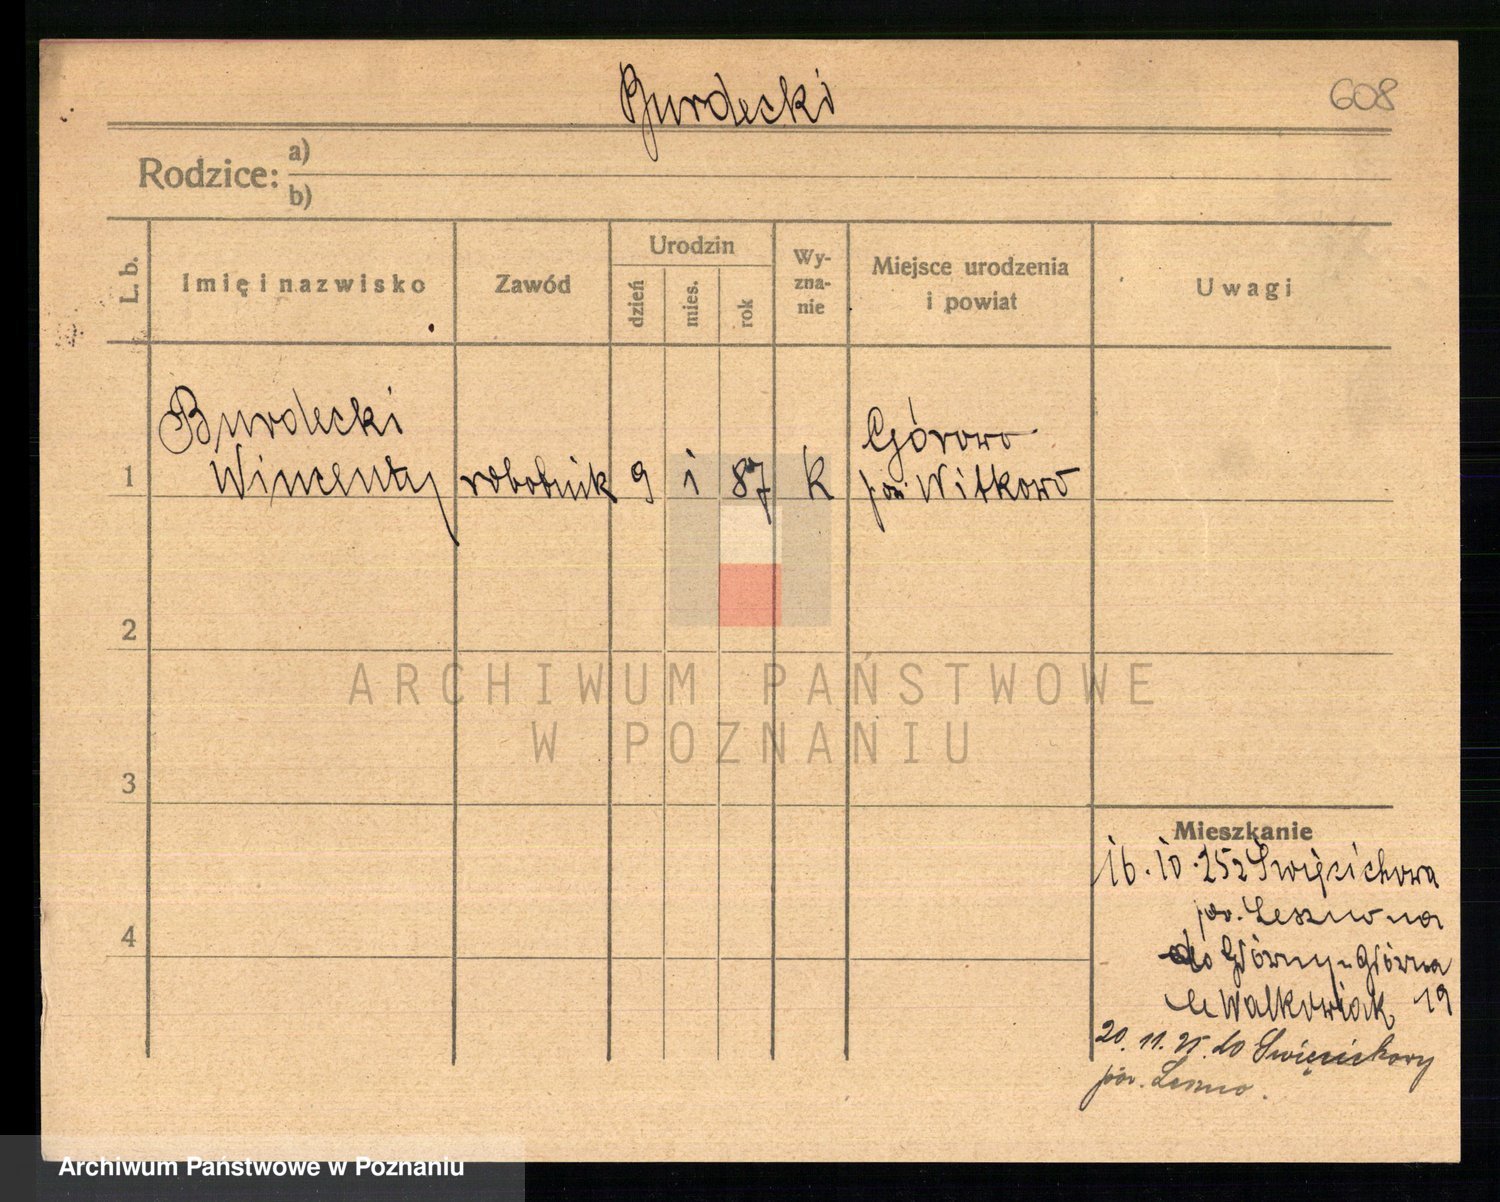 Burdecki
608
Rodzice: a)
b)
L. b.
Imię i nazwisko
Zawód
Urodzin
dzień
mies.
rok
Wy-
zna-
nie
Miejsce urodzenia
i powiat
Uwagi
Burdecki
Górowo
1 Wincenty robotnik 9 1 87 k pow. Witkowo
2
3
4
ARCHIWUM PAŃSTWOWE
W POZNANIU
Mieszkanie
16.10.25 z Święcichowa
pow. Leszno na
do Główny u Główna
Walkowiak 19
20.11.25. do Święcichowy
pow. Leszno.
Archiwum Państwowe w Poznaniu